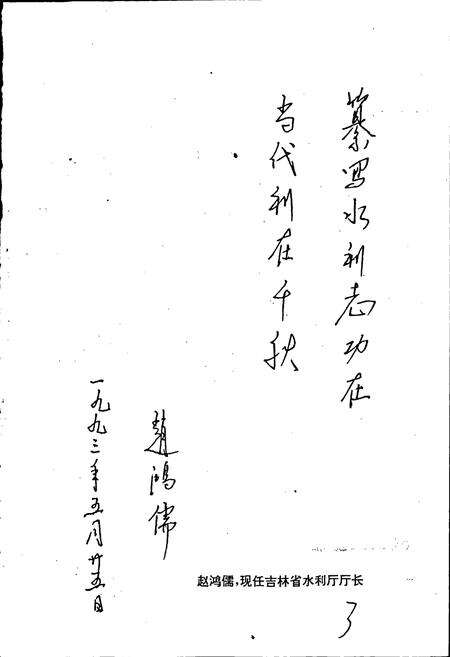 纂写水利志功在
当代利在千秋
趙鸿儒
一九九三年五月廿五日
赵鸿儒,现任吉林省水利厅厅长
3